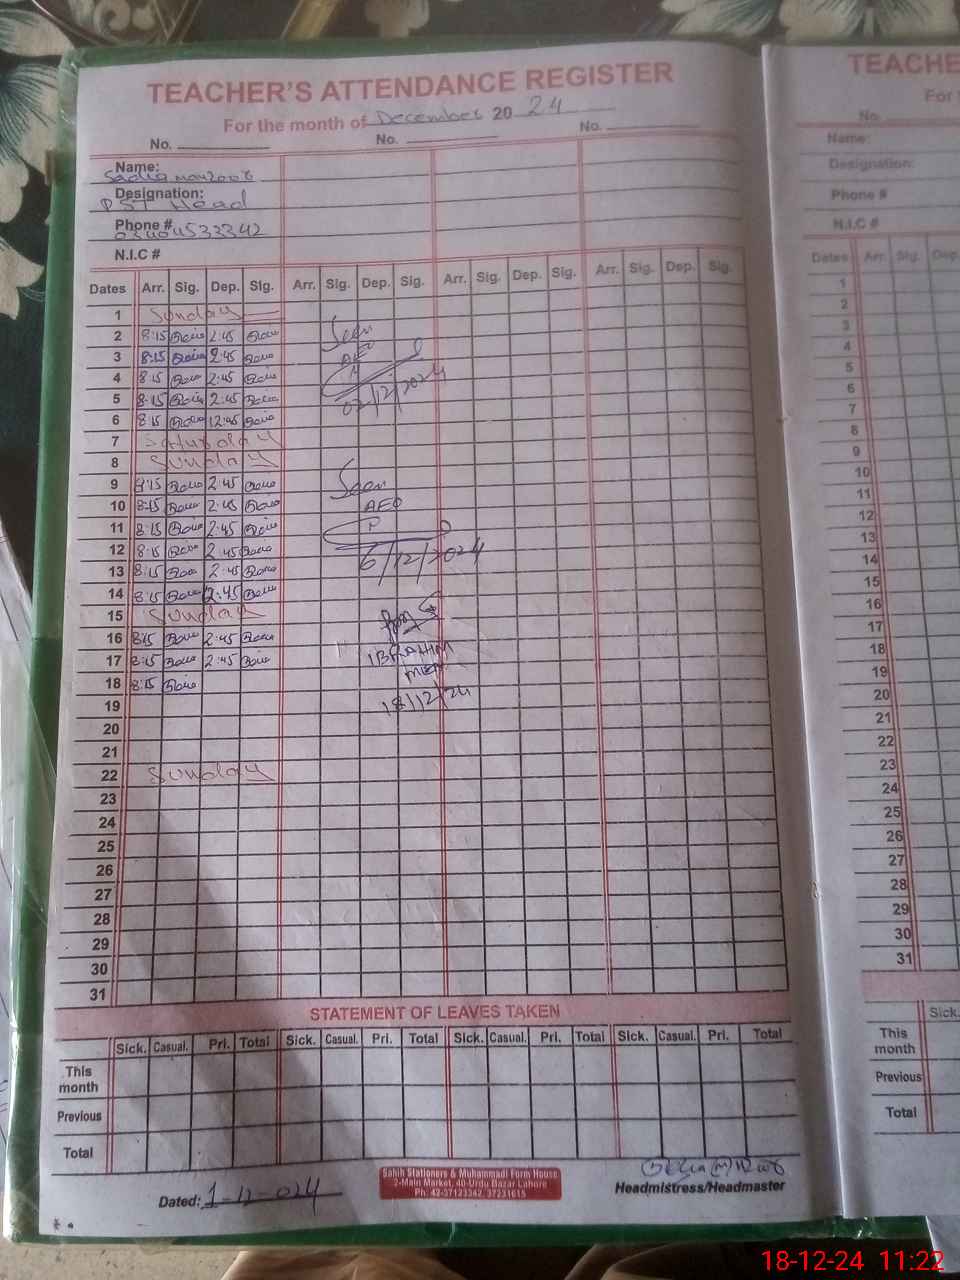 TEACHER'S ATTENDANCE REGISTER
For the month of December 20 24
No. No. No.
Name:
Sadia
Designation:
PST Head
Phone #
N.I.C #
Dates Arr. Sig. Dep. Sig. Arr. Sig. Dep. Sig. Arr. Sig. Dep. Sig. Arr. Sig. Dep. Sig.
1 Sunday
2 8:15 2:45
3 8:15 2:45
4 8:15 2:45
5 8:15 2:45
6 8:15 12:45
7 Saturday
8 Sunday
9 8:15 2:45
10 8:15 2:45
11 8:15 2:45
12 8:15 2:45
13 8:15 2:45
14 8:15 2:45
15 Sunday
16 8:15 2:45
17 8:15 2:45
18 8:15
19
20
21
22 Sunday
23
24
25
26
27
28
29
30
31
Seen
AEO
02/12/2024
Seen
AEO
6/12/2024
IBRAHIM
MEA
18/12/24
STATEMENT OF LEAVES TAKEN
Sick. Casual. Pri. Total Sick. Casual. Pri. Total Sick. Casual. Pri. Total Sick. Casual. Pri. Total
This month
Previous
Total
Dated: 1-12-024
Sahih Stationers & Muhammadi Form House
2-Main Market, 40-Urdu Bazar Lahore
Ph: 42-37123342, 37231615
Headmistress/Headmaster
TEACHE
For
No.
Name:
Designation:
Phone #
N.I.C #
Dates Arr. Sig. Dep.
1
2
3
4
5
6
7
8
9
10
11
12
13
14
15
16
17
18
19
20
21
22
23
24
25
26
27
28
29
30
31
Sick.
This month
Previous
Total
18-12-24 11:22